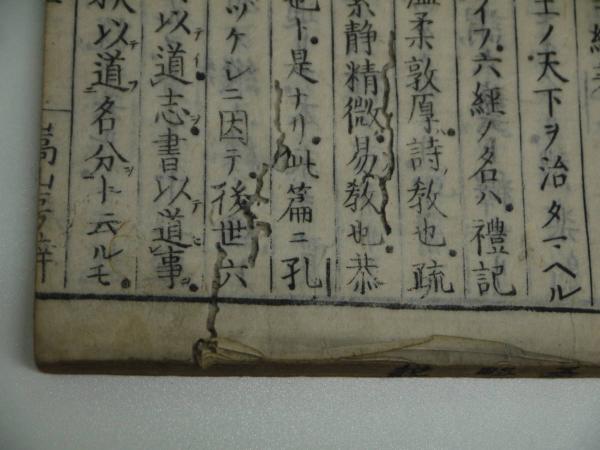 王ノ天下ヲ治タマヘル
イフ六經ノ名ハ禮記
温柔敦厚詩教也疏
絜静精微易教也恭
也ト是ナリ此篇ニ孔
ヅケシニ因テ後世六
以道志書以道事
以道名分ト云ルモ
嵩山房梓